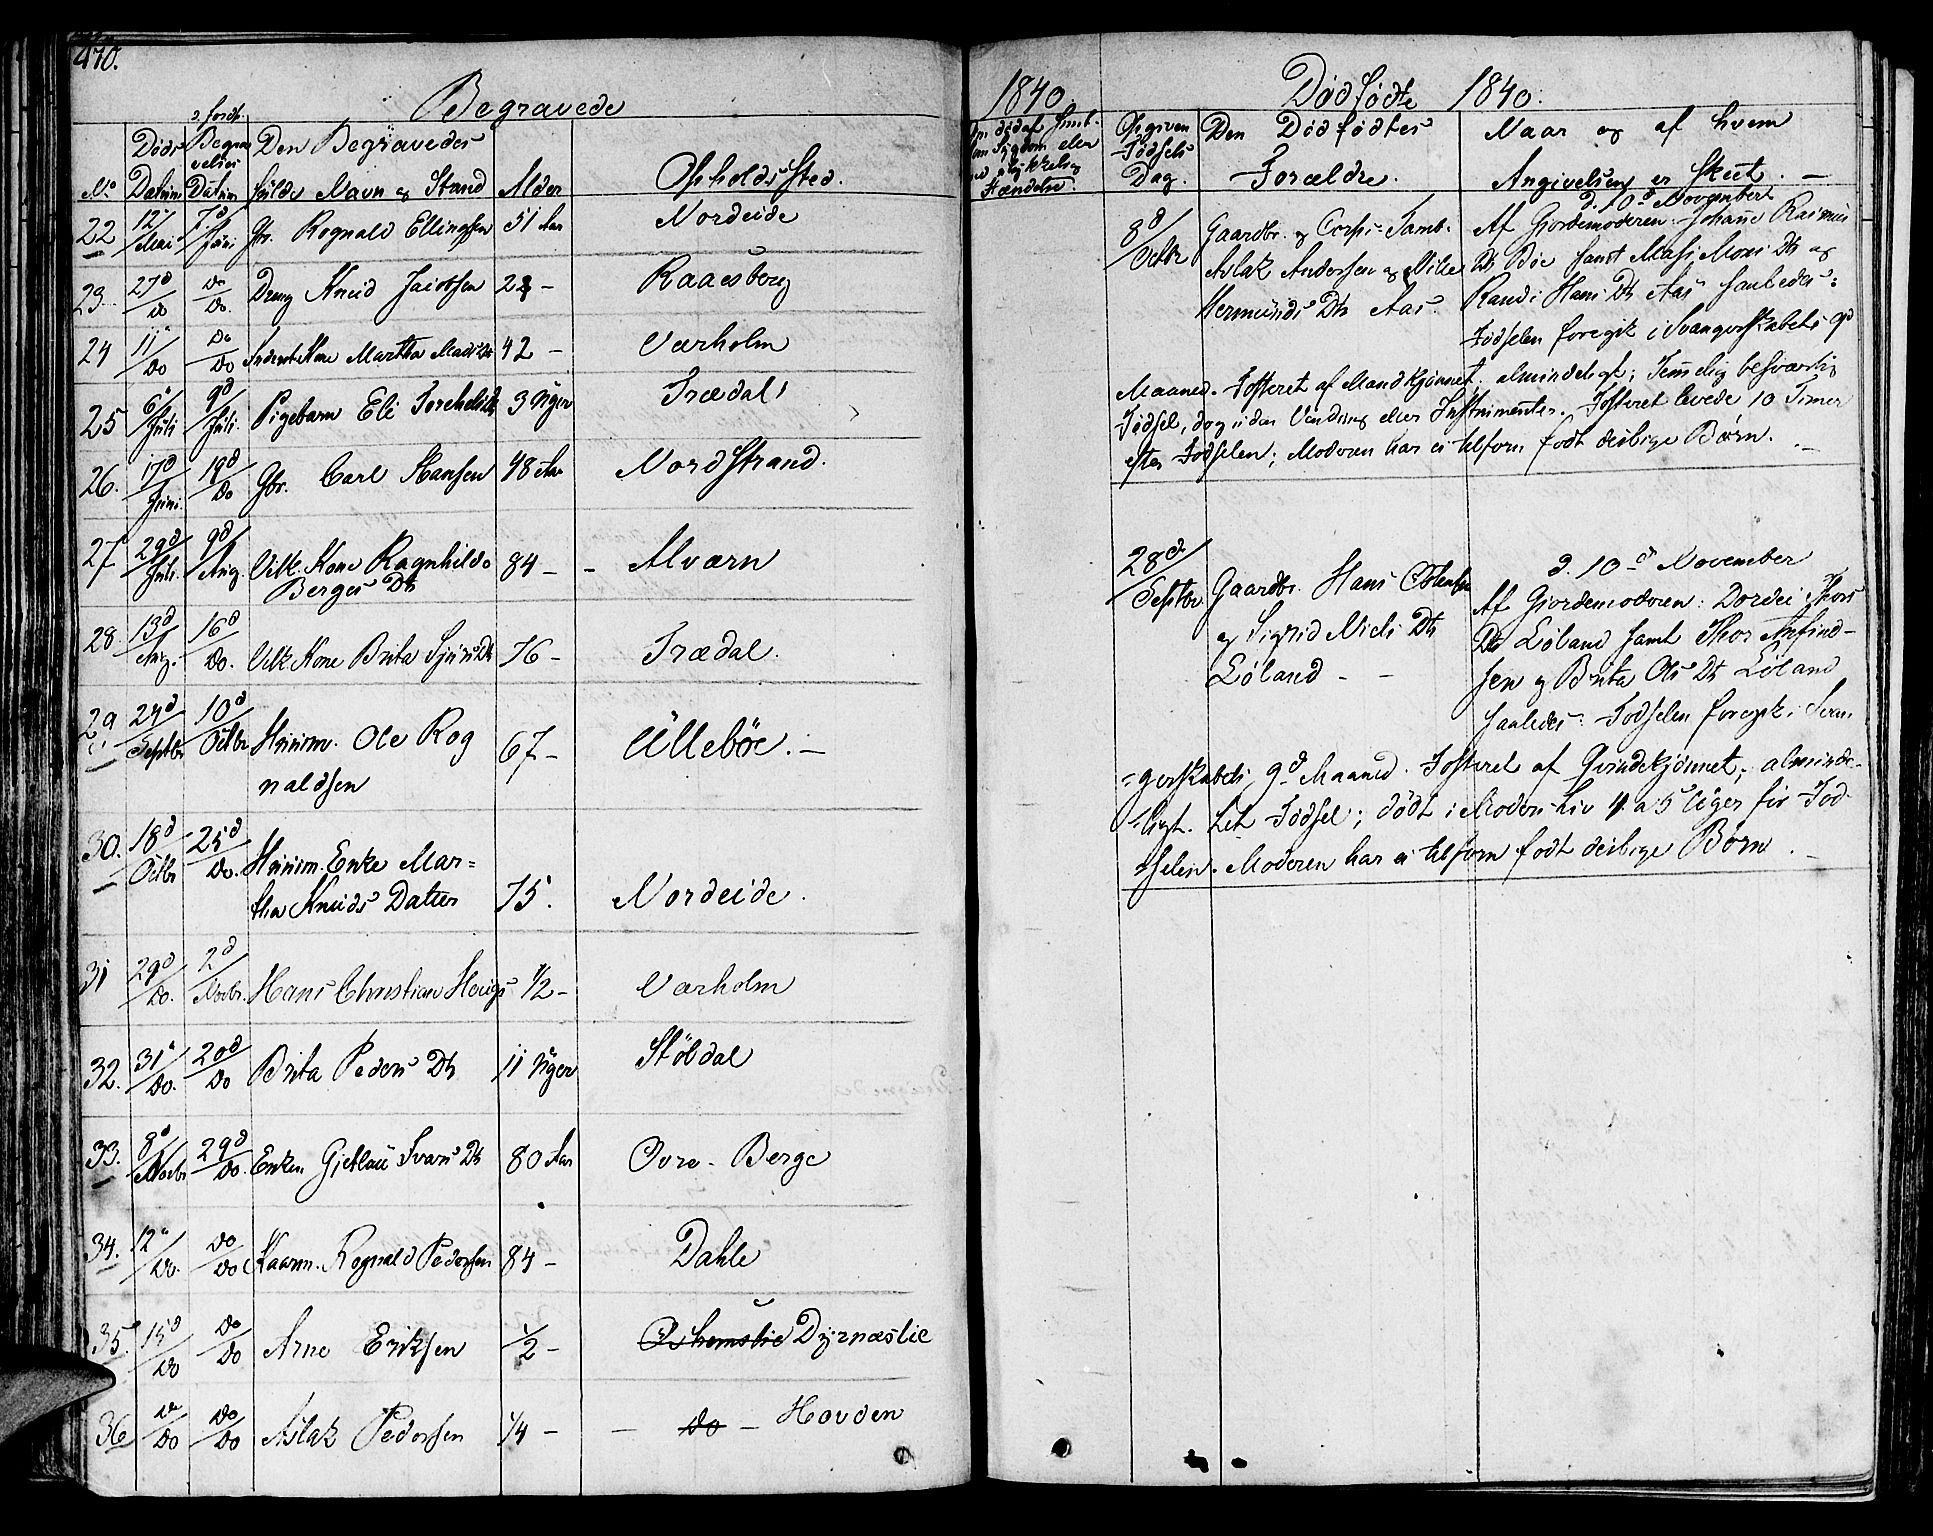 470.
Begravede
1840
Dødfødte 1840.
No
Døds Datum
Begravelses Datum
Den Begravedes fulde Navn og Stand
Alder
Opholds Sted.
22 12/Mai 7d/Juni Gbr. Rognald Ellingsen 51 Aar Nordeide
23. 27d/do do/do. Dreng Knud Jacobsen 2 – Raaesberg
24 11/do do/do Kone Martha Mads Dtr 42 – Værholm
25 6/Juli 9d/Juli. Pigebarn Eli 3 Uger Trædal
26. 17d/Juni. 19d/do Gbr. Carl Hansen 48 Aar Nordstrand.
27 29d/Juli 9d/Aug. Vilk. Kone Ragnhild Berges Dtr 84 – – Alværn
28. 13d/Aug. 16d/do. Vilk Kone Brita Dtr 76 – Trædal.
29 24d/Septbr 10d/Octbr Huusm. Ole Rognaldsen 67 – Ullebøe. –
30. 18d/Octbr 25d/do. Huusm. Enke Martha Knuds Datter 75. Nordeide.
31 29d/do. 2d/Novbr. Hans Christian 1/2 – Værholm
32. 31/do. 20d/do Brita Peders Dtr 11 Uger Støldal
33. 8d/Novbr 29d/do. Enken Dtr 80 Aar Øvre-Berge
34. 12/do. do/do Kaarm. Rognald Pedersen 84 – Dahle
35. 15d/do do/do Arne Eriksen 1/2 – Dyrnæslie
36 do/do do/do Aslak Pedersen 1/4 – – do – Hovden
Opgiven Fødsels Dag.
Den Dødfødtes Forældre.
Naar og af hvem Angivelsen er skeet. –
8d/Octbr
Gaardbr. og Corps-Tamb.
Aslak Andersen og
Hermunds Dtr Aas.
d. 10d November
Af Gjordemoderen Johanne Rasmus
Dtr Bøe samt Mons Dtr og
Randi Hans Dtr Aas saaledes:
Fødselen foregik i Svangerskabets 9d
Maaned. Fosteret af Mandkjønnet; almindeligt; Temmelig besværlig
Fødsel, dog uden Vending eller Instrumenter. Fosteret levede 10 Timer
efter Fødselen; Moderen har ei tilforn født deslige Børn. –
28d/Septbr.
Gaardbr. Hans
og Sigrid Niels Dtr
Løland – –
d. 10d November
Af Gjordemoderen: Dordei Thors
Dtr Løland samt Thor Anfind-
sen og Brita Ols Dtr Løland
saaledes: Fødselen foregik i Svan-
gerskabets 9d Maaned. Fosteret af Qvindekjønnet; alminde-
ligt. Let Fødsel; dødt i Moders Liv 4 a 5 Uger før Fød-
selen. Moderen har ei tilforn født deslige Børn. –